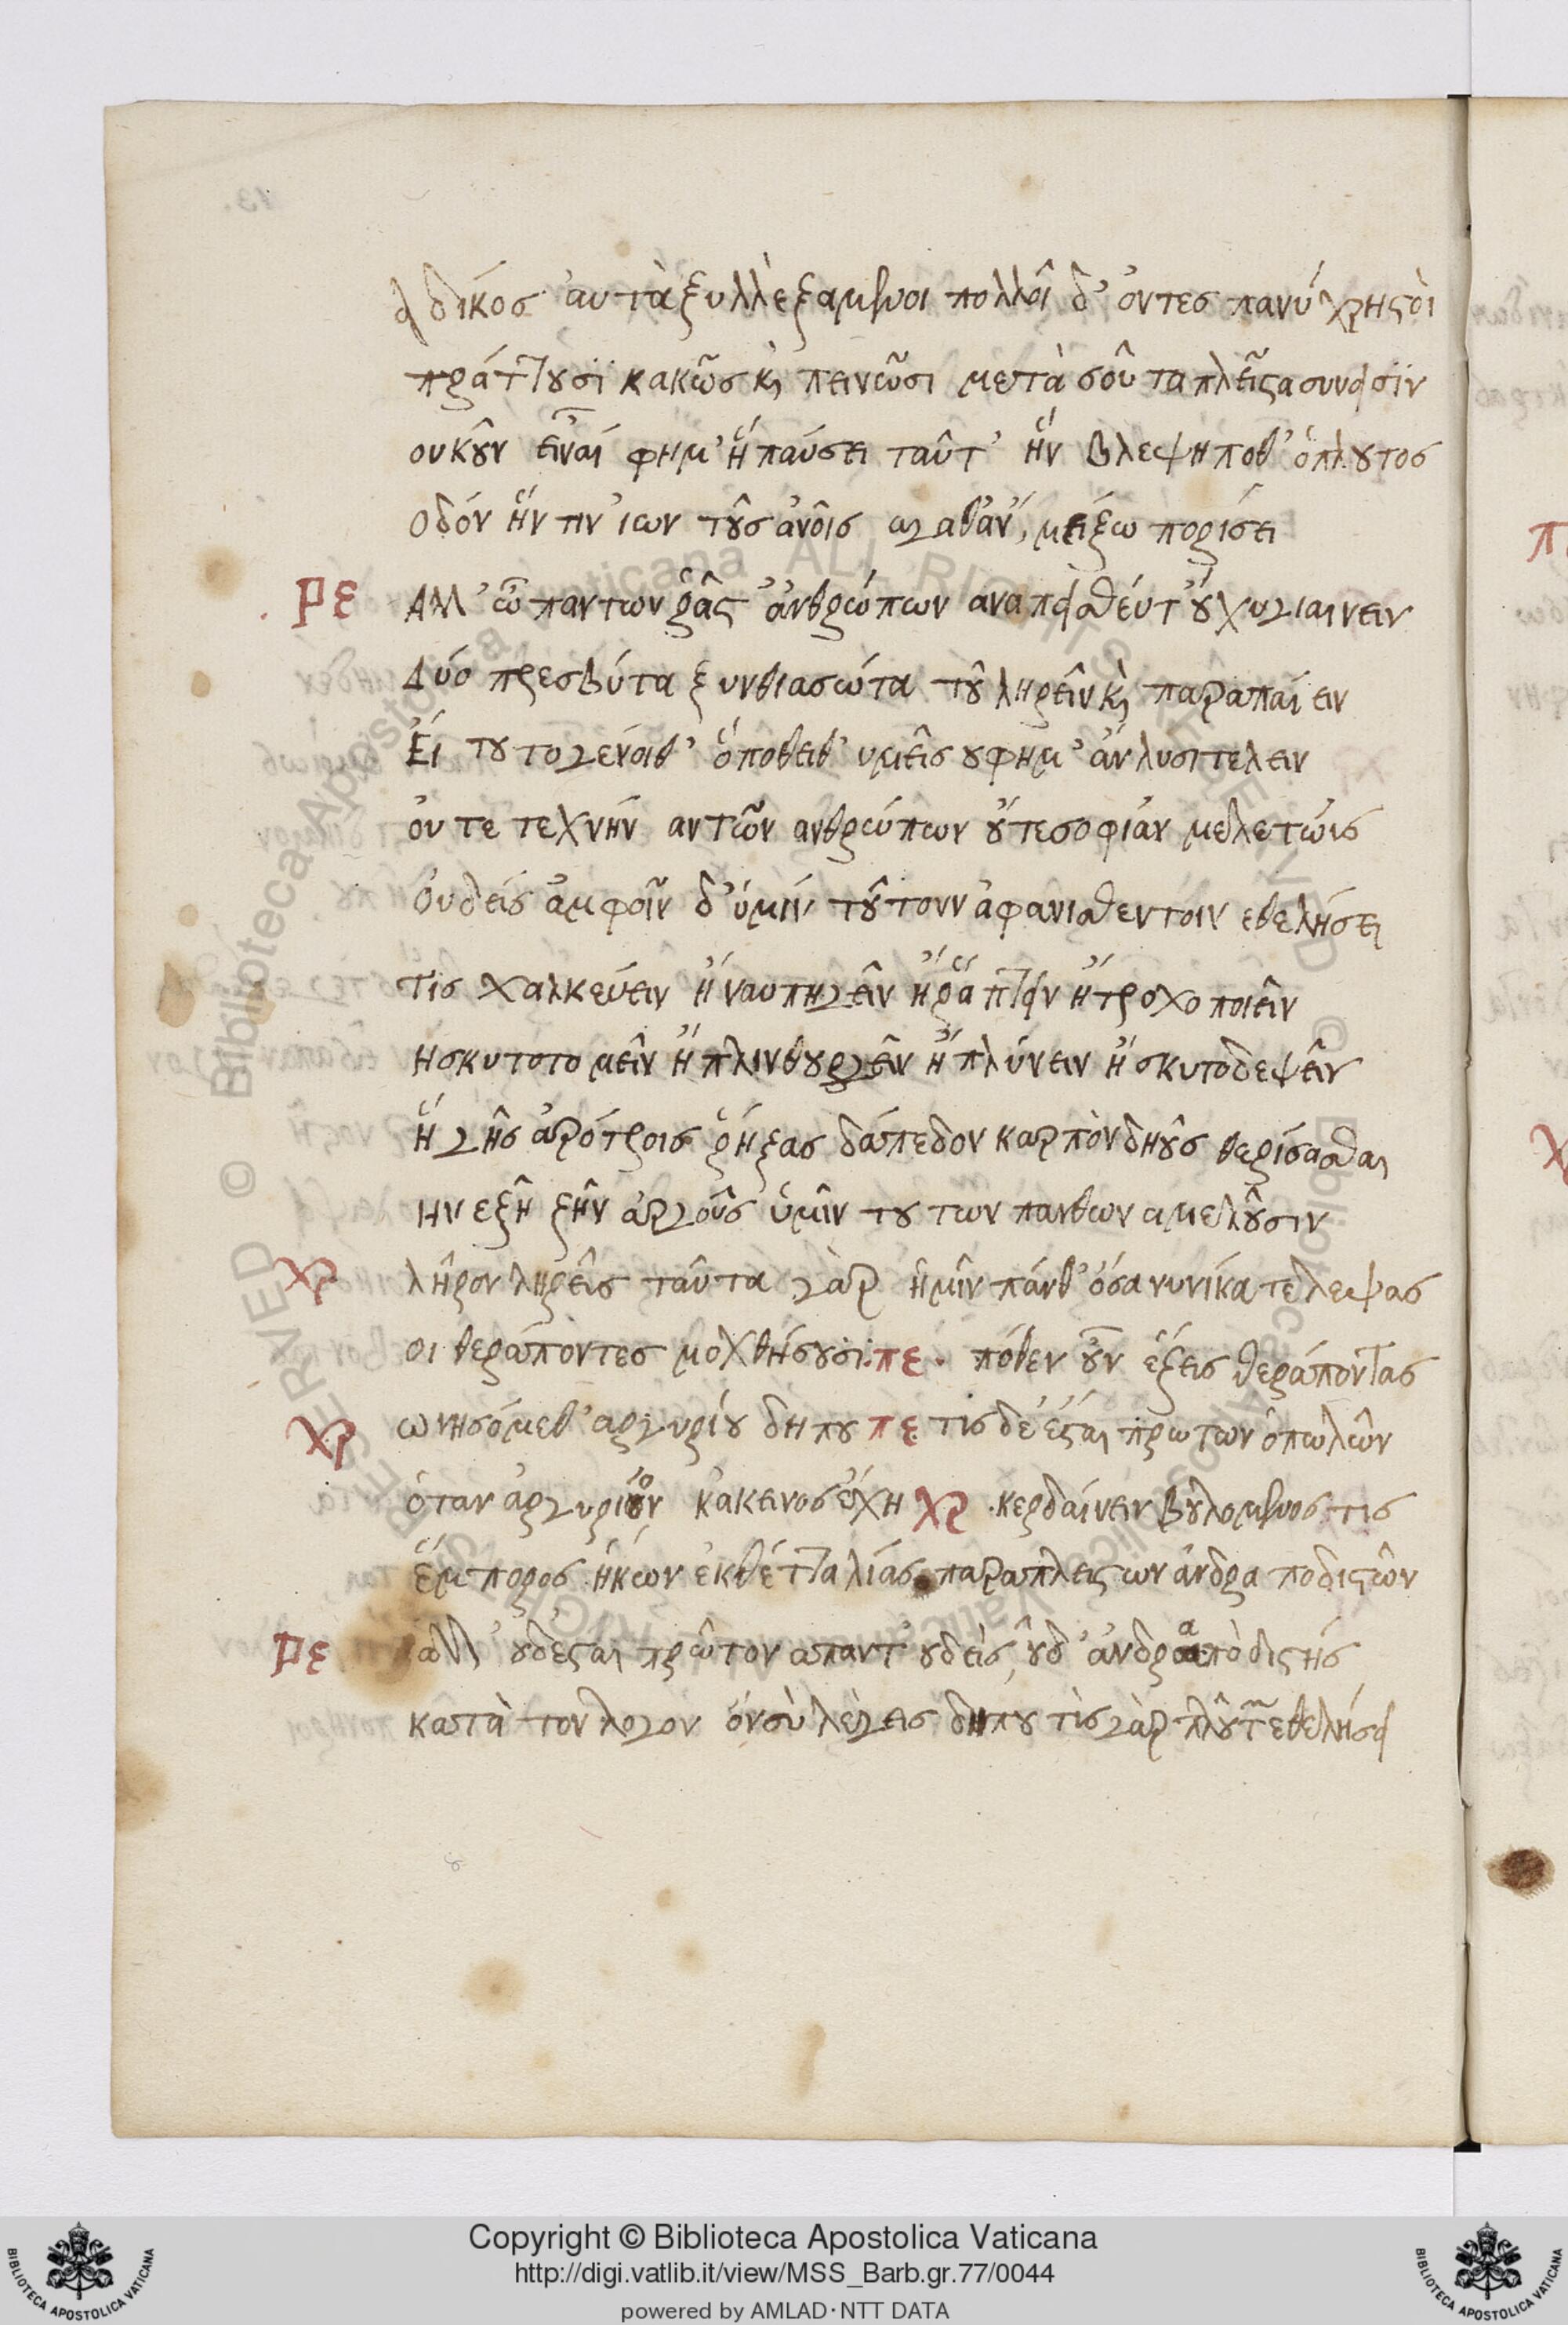 ἀδίκος αὐτὰ ξυλλὲξαμενοι πολλοῖ δ' ὄντες πανύ χρηςοὶ
πράττουσϊ κακῶς κὶ πεινῶσι μετὰ σοῦ τα πλεῖςα συνεισϊν
ουκοῦν εἶναί φημ' ἥ παύσει ταῦτ' ἥν βλεψη ποθ' ὁπλουτος
οδόν ἥν τιν' ιων τοῦς ἀνοις αγαθἀν, μείξω πορίσει
Πε Αλλ' ὦ παντων ῥᾶς ἀνθρώπων αναπεισθέντ' οὐχ υγιαινειν
Δύο πρεσβύτα ξυνθιασώτα τοῦ ληρεῖν κὶ παραπαίειν
Ἐί τουτο γενοιθ' ὅ ποθειθ' υμεῖς ουφημ' ἄν λυσιτελειν
ὀυτε τεχνήν αντῶν ανθρώπων οὔτε σοφιάν μελετώις
Ὀυδείς ἀμφοῖν δ' ὑμίν τοῦτοιν ἀφανισθεντοιν εθελήσει
τίς χαλκεύειν ἤ ναυπηγεῖν ἤ ῥάπτειν ἤ τροχοποιεῖν
ἠσκυτοτομεῖν ἤ πλινθουργεῖν ἤ πλύνειν ἤ σκυτοδεψεῖν
ἥ γῆς ἀρότροις ῥήξας δάπεδον καρπὸν δηοῦς θερίσασθαι
ην εξῆ ξῆν ἀργοῦς ὑμῖν τουτων πανθων αμελοῦσιν
χρ λῆρον ληρεῖς ταῦτα γὰρ ἡμῖν πάνθ' ὅσα νυνίκα τελεψας
οι θεράποντες μοχθήσουσι: πε. πόθεν οὖν ἕξεις θεράποντας
χρ ωνησόμεθ' αργυρίου δηπου πε τις δέ ἔςαι πρωτων ὁπωλῶν
ὅταν ἀργυριον κακεινος ἔχη χρ .κερδαίνειν βουλομενος τις
ἔμπορος ἡκων ἐκ θέτταλιάς παραπλειςων ἀνδραποδιςῶν
πε ἀλλ' ουδέςαι πρῶτον απαντ' ουδεὶς, οὐδ' ἀνδραπὸδιςής
κατὰ τον λογον ὅν σὺ λέγεις δηπου τὶς γὰρ πλουτῶν εθελήσει
Copyright © Biblioteca Apostolica Vaticana
http://digi.vatlib.it/view/MSS_Barb.gr.77/0044
powered by AMLAD·NTT DATA